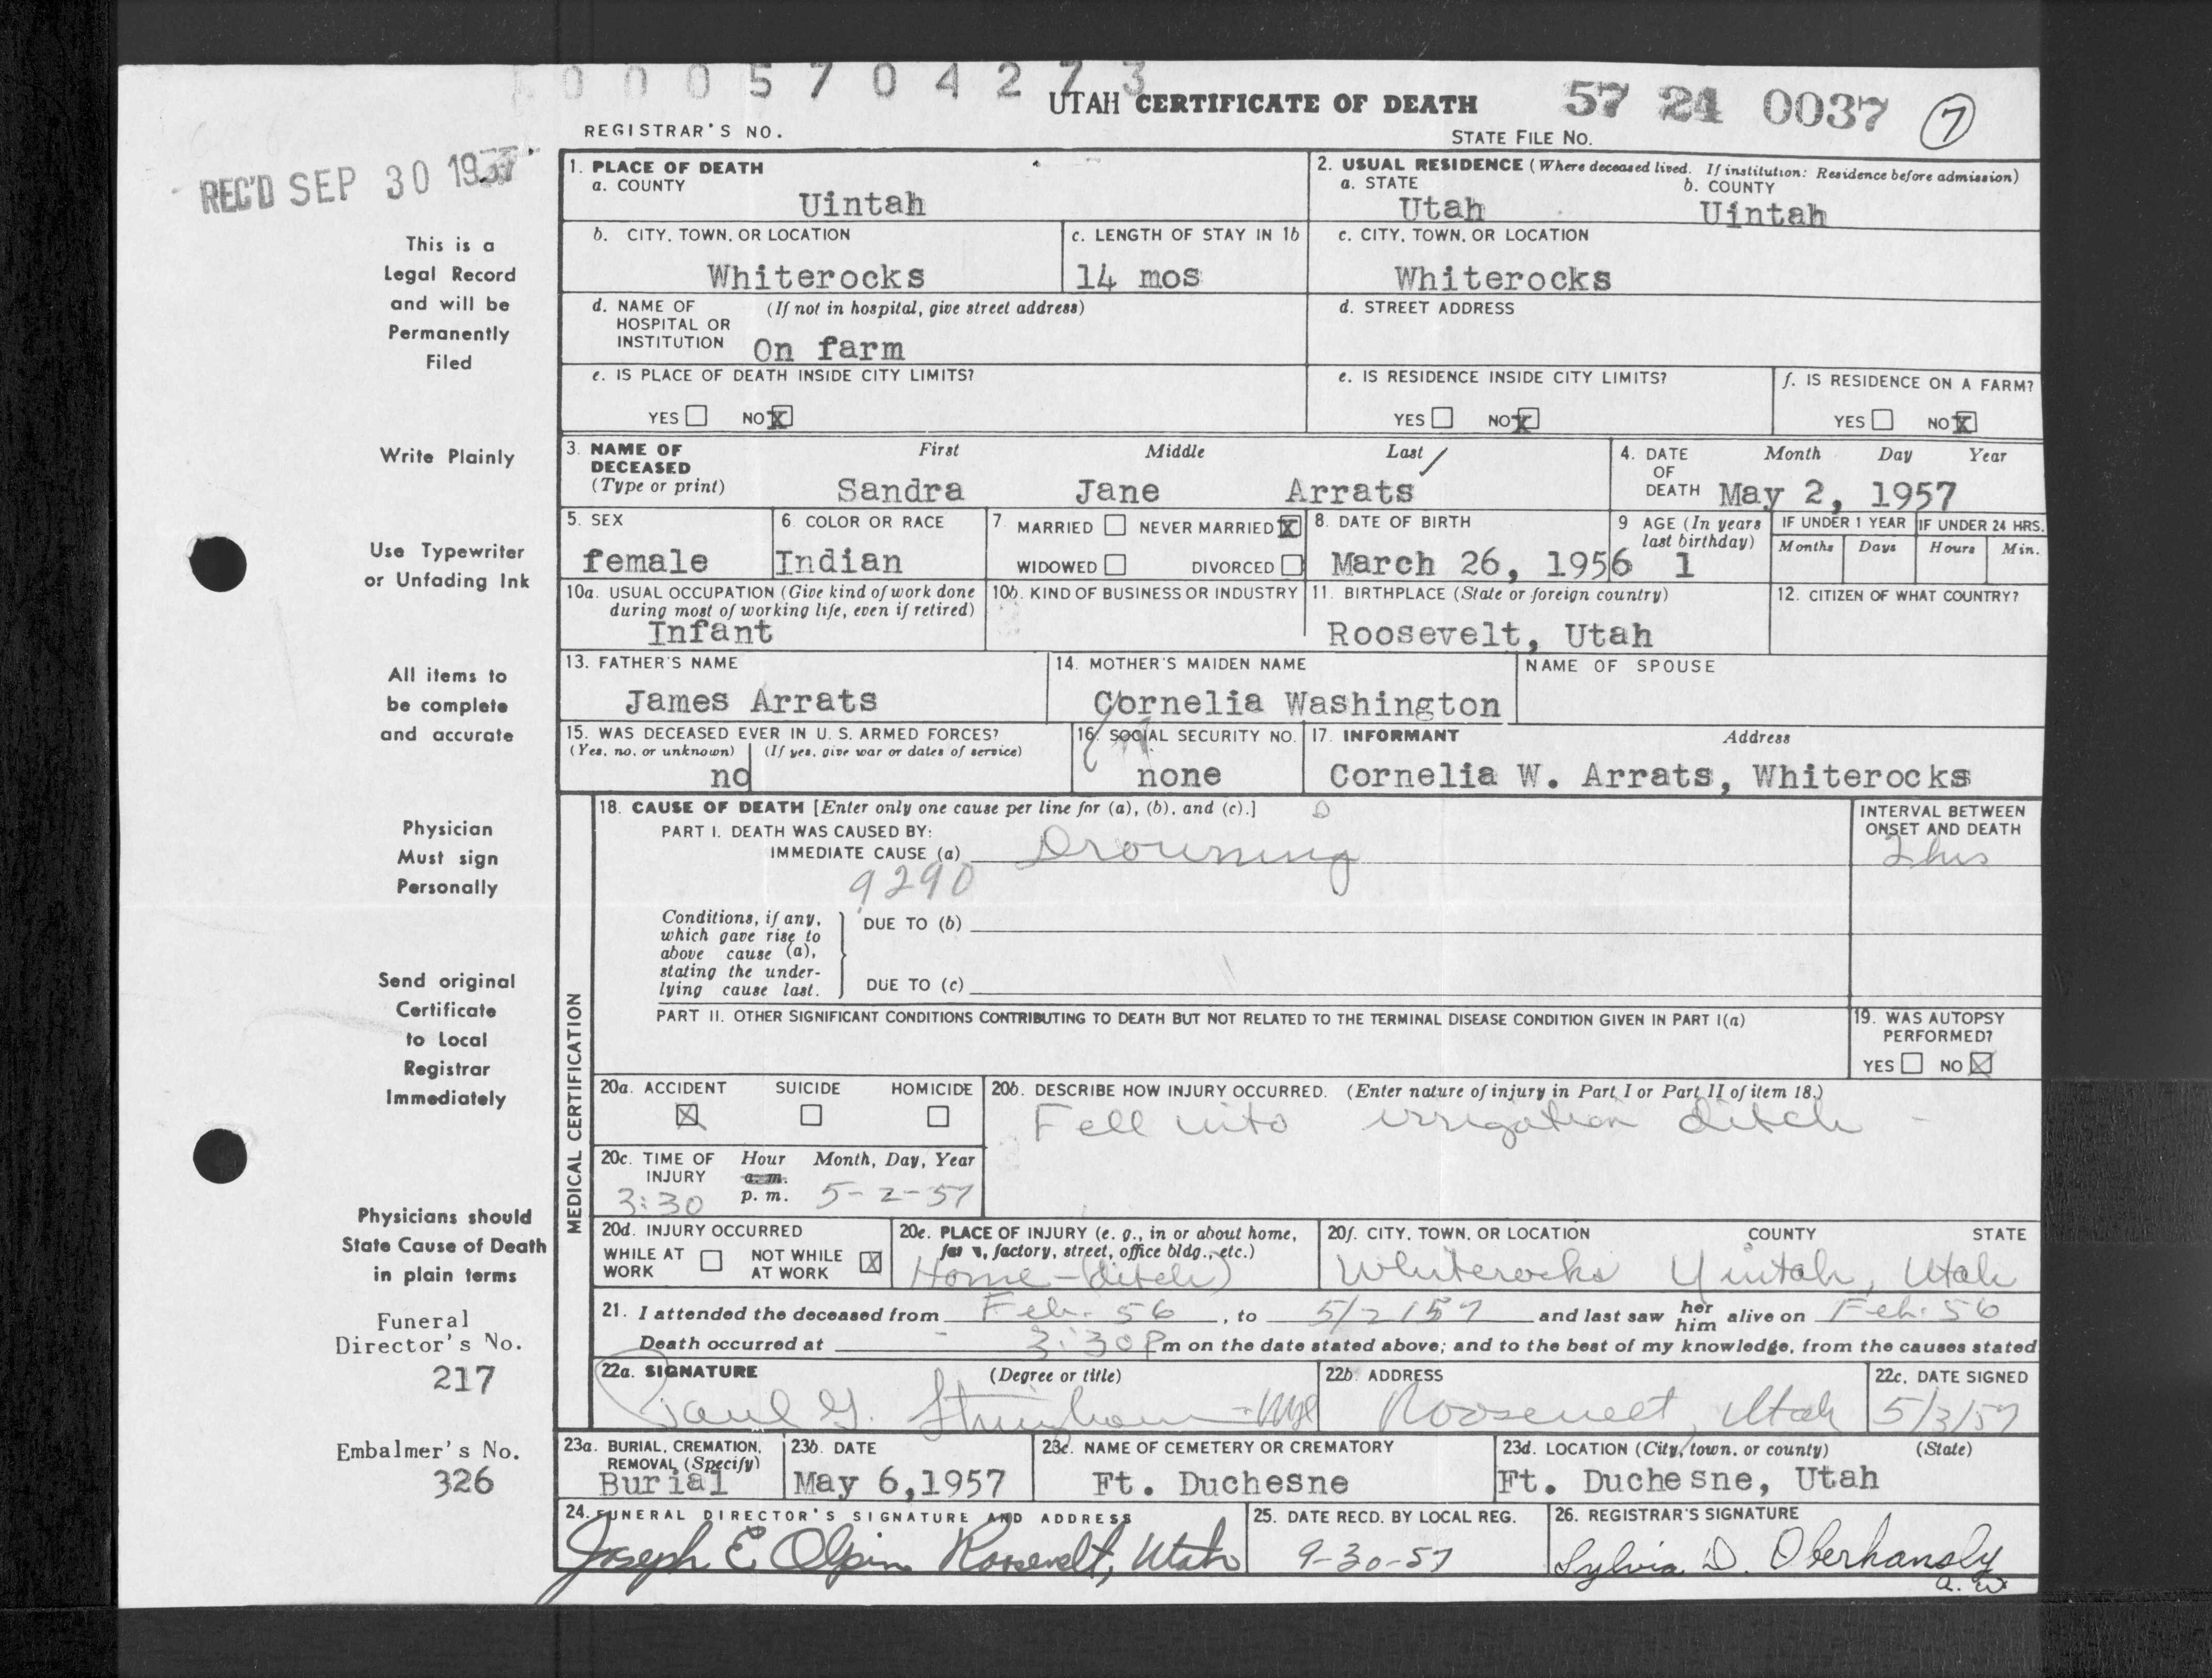 0 0 0 5 7 0 4 2 7 3
UTAH CERTIFICATE OF DEATH
57 24 0037 7
REGISTRAR'S NO.
STATE FILE NO.
REC'D SEP 30 1957
This is a
Legal Record
and will be
Permanently
Filed
Write Plainly
Use Typewriter
or Unfading Ink
All items to
be complete
and accurate
Physician
Must sign
Personally
Send original
Certificate
to Local
Registrar
Immediately
Physicians should
State Cause of Death
in plain terms
Funeral
Director's No.
217
Embalmer's No.
326
1. PLACE OF DEATH
a. COUNTY
Uintah
2. USUAL RESIDENCE (Where deceased lived. If institution: Residence before admission)
a. STATE b. COUNTY
Utah Uintah
b. CITY, TOWN, OR LOCATION
Whiterocks
c. LENGTH OF STAY IN 1b
14 mos
c. CITY, TOWN, OR LOCATION
Whiterocks
d. NAME OF (If not in hospital, give street address)
HOSPITAL OR
INSTITUTION On farm
d. STREET ADDRESS
e. IS PLACE OF DEATH INSIDE CITY LIMITS?
YES NO X
e. IS RESIDENCE INSIDE CITY LIMITS?
YES NO X
f. IS RESIDENCE ON A FARM?
YES NO X
3. NAME OF DECEASED
(Type or print)
First Middle Last
Sandra Jane Arrats
4. DATE OF DEATH
Month Day Year
May 2, 1957
5. SEX
female
6. COLOR OR RACE
Indian
7. MARRIED NEVER MARRIED X
WIDOWED DIVORCED
8. DATE OF BIRTH
March 26, 1956
9 AGE (In years
last birthday)
1
IF UNDER 1 YEAR
Months Days
IF UNDER 24 HRS.
Hours Min.
10a. USUAL OCCUPATION (Give kind of work done
during most of working life, even if retired)
Infant
10b. KIND OF BUSINESS OR INDUSTRY
11. BIRTHPLACE (State or foreign country)
Roosevelt, Utah
12. CITIZEN OF WHAT COUNTRY?
13. FATHER'S NAME
James Arrats
14. MOTHER'S MAIDEN NAME
Cornelia Washington
NAME OF SPOUSE
15. WAS DECEASED EVER IN U. S. ARMED FORCES?
(Yes, no, or unknown) (If yes, give war or dates of service)
no
16. SOCIAL SECURITY NO.
none
17. INFORMANT Address
Cornelia W. Arrats, Whiterocks
MEDICAL CERTIFICATION
18. CAUSE OF DEATH [Enter only one cause per line for (a), (b), and (c).]
PART I. DEATH WAS CAUSED BY:
IMMEDIATE CAUSE (a) Drowning
9290
INTERVAL BETWEEN
ONSET AND DEATH
2 hrs
Conditions, if any,
which gave rise to
above cause (a),
stating the under-
lying cause last.
DUE TO (b)
DUE TO (c)
PART II. OTHER SIGNIFICANT CONDITIONS CONTRIBUTING TO DEATH BUT NOT RELATED TO THE TERMINAL DISEASE CONDITION GIVEN IN PART I(a)
19. WAS AUTOPSY
PERFORMED?
YES NO X
20a. ACCIDENT SUICIDE HOMICIDE
X
20b. DESCRIBE HOW INJURY OCCURRED. (Enter nature of injury in Part I or Part II of item 18.)
Fell into irrigation ditch -
20c. TIME OF INJURY
Hour Month, Day, Year
a. m.
3:30 p. m. 5-2-57
20d. INJURY OCCURRED
WHILE AT WORK NOT WHILE AT WORK X
20e. PLACE OF INJURY (e. g., in or about home,
farm, factory, street, office bldg., etc.)
Home - (ditch)
20f. CITY, TOWN, OR LOCATION COUNTY STATE
Whiterocks Uintah, Utah
21. I attended the deceased from Feb. 56, to 5/2/57 and last saw her him alive on Feb. 56
Death occurred at 3:30 Pm on the date stated above; and to the best of my knowledge, from the causes stated
22a. SIGNATURE (Degree or title)
Paul G. Stringham - MD
22b. ADDRESS
Roosevelt, Utah
22c. DATE SIGNED
5/3/57
23a. BURIAL, CREMATION,
REMOVAL (Specify)
Burial
23b. DATE
May 6,1957
23c. NAME OF CEMETERY OR CREMATORY
Ft. Duchesne
23d. LOCATION (City, town, or county) (State)
Ft. Duchesne, Utah
24. FUNERAL DIRECTOR'S SIGNATURE AND ADDRESS
Joseph E Olpin Roosevelt, Utah
25. DATE RECD. BY LOCAL REG.
9-30-57
26. REGISTRAR'S SIGNATURE
Sylvia D. Oberhansly
a. w